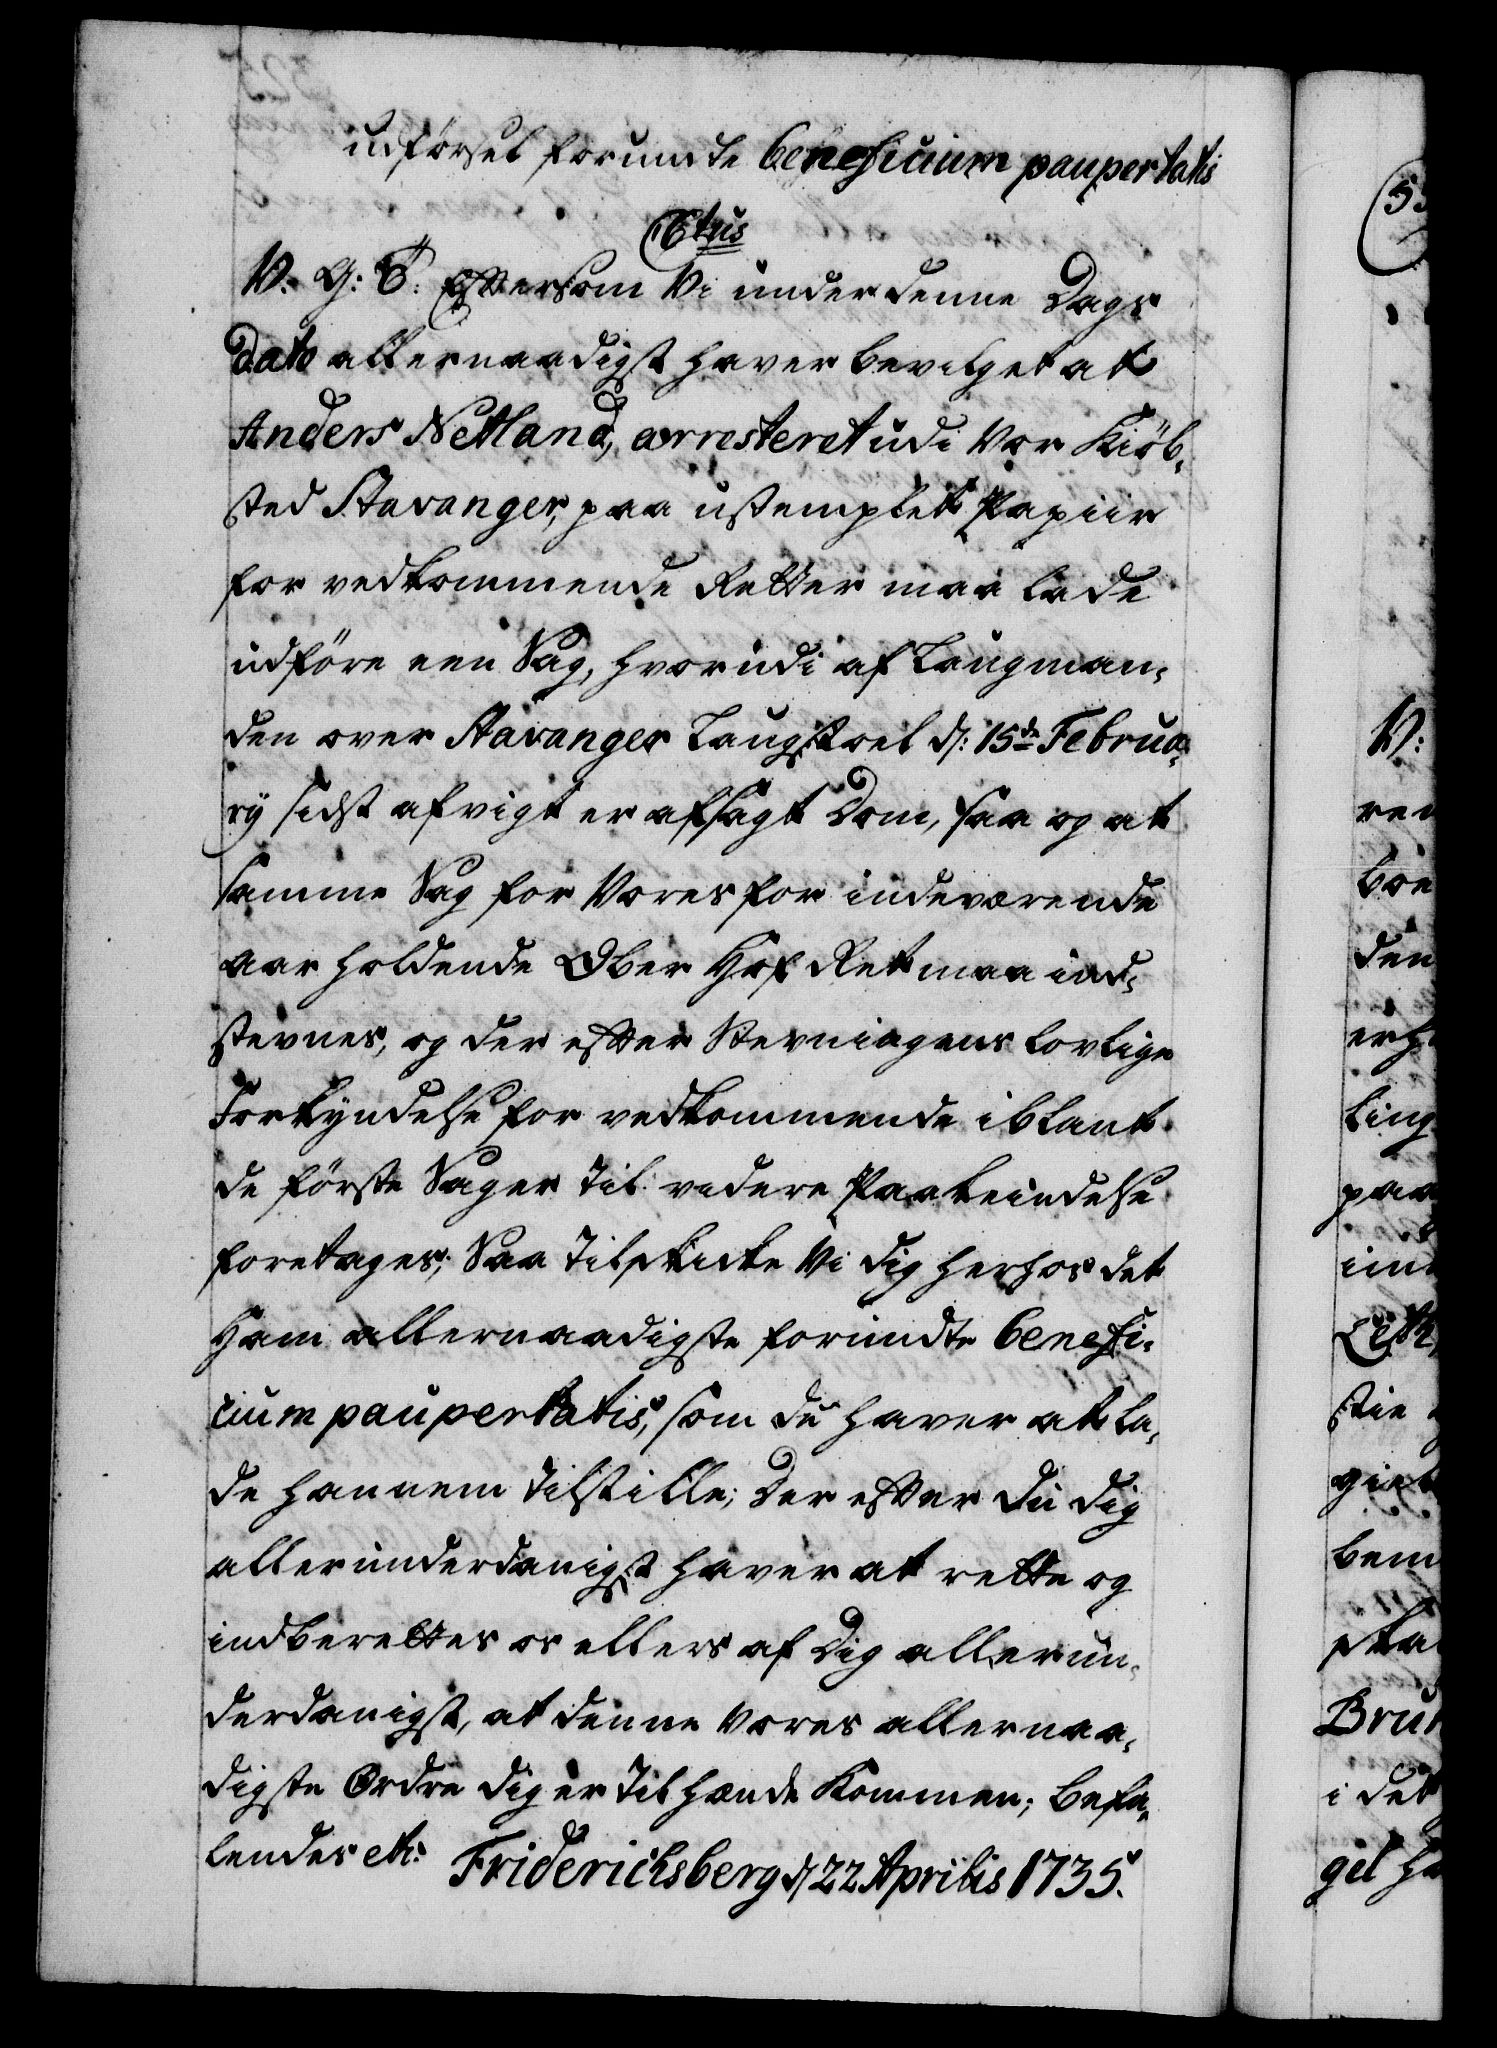 udførsel forundte beneficium paupertatis
C6tus
V. G: T. Eftersom Vi under denne Dags
Dato allernaadigst haver bevilget at
Anders Netland, arresteret udi Vor Kiöb-
sted Stavanger, paa ustemplet Papiir
for vedkommende Retter maa lade
udföre een Sag, hvorudi af Laugman-
den over Stavanger Laugstoel d: 15de Februa-
rÿ sidst afvigt er afsagt Dom, saa og at
samme Sag for Vores for indeværende
aar holdende Ober Hof Ret maa ind-
stevnes, og der efter Stevningens lovlige
Forkyndelse for vedkommende iblant
de förste Sager til videre Paakiendelse
foretages; Saa tilskicke Vi dig herhos det
Ham allernaadigste forundte benefi-
cium paupertatis, som du haver at la-
de hannem tilstille; Der efter du dig
allerunderdanigst haver at rette og
indberettes os ellers af Dig allerun-
derdanigst, at denne Vores allernaa-
digste Ordre dig er til hænde Kommen; Befa-
lendes etc: Friderichsberg d 22 Aprilis 1735.
V:
ren
boe
den
erh
ling
paa
stie
bem
Brun
i det
gel ha